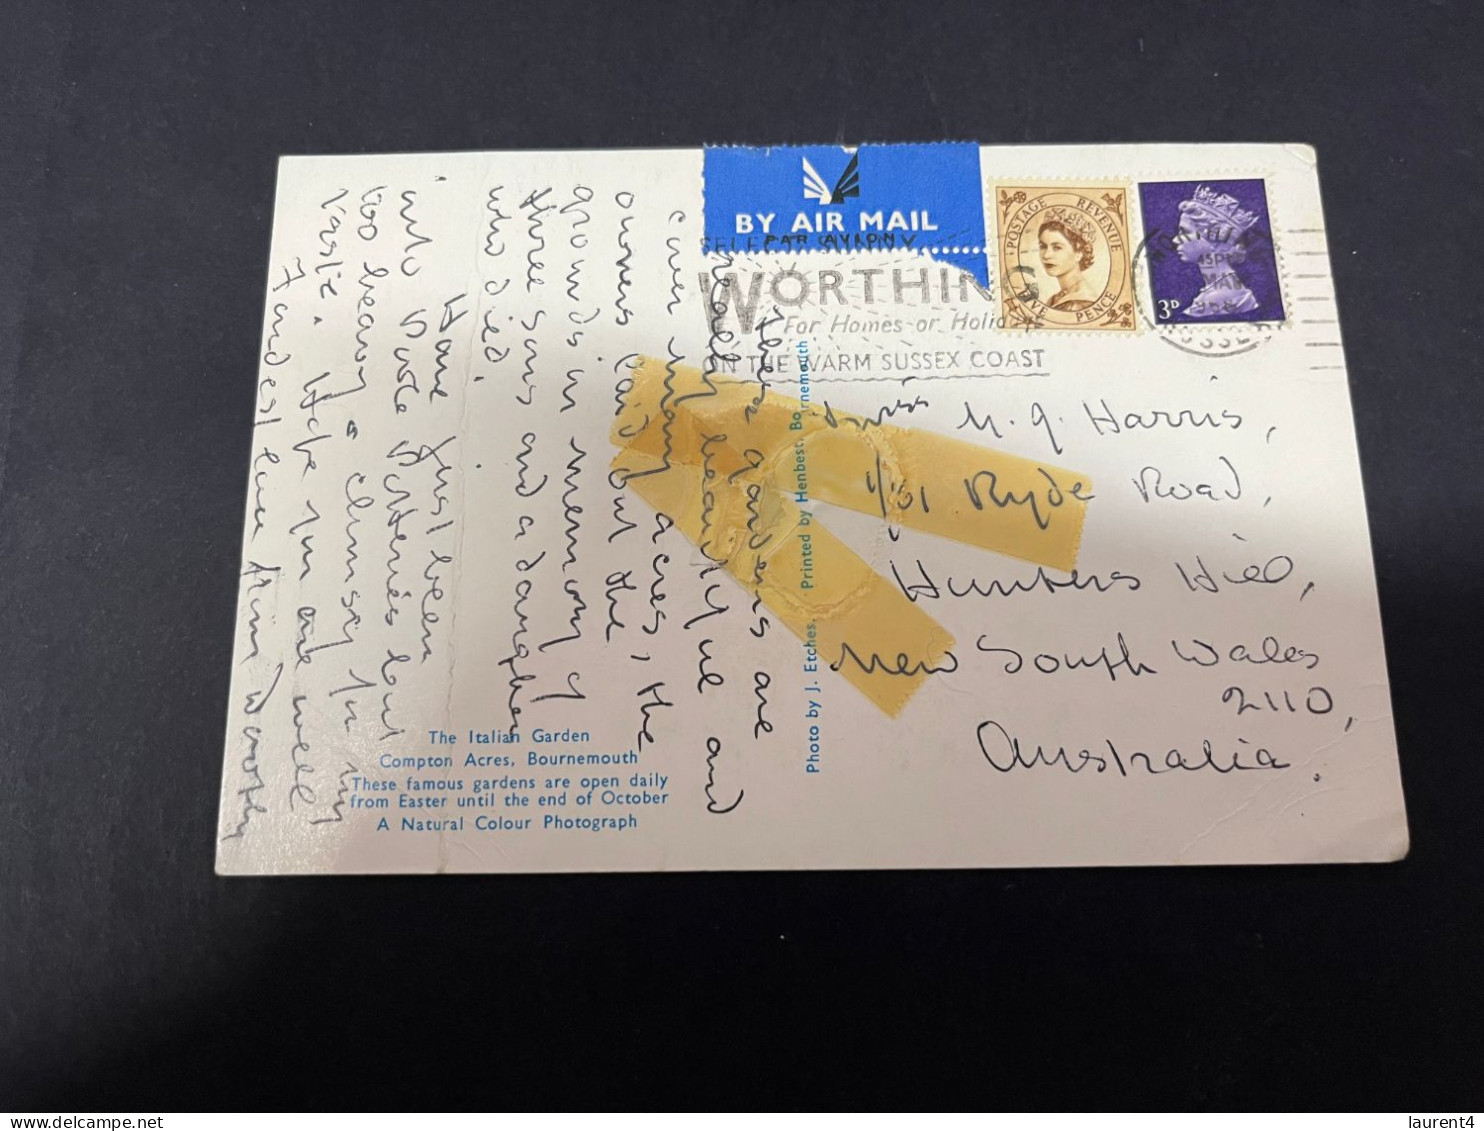 BY AIR MAIL
PAR AVION
WORTHING
For Homes or Holidays
ON THE WARM SUSSEX COAST
POSTAGE REVENUE
FIVE PENCE
3D
These gardens are
really beautiful and
cover many acres, the
owners laid out the
grounds in memory of
three sons and a daughter
who died.
Have just been
into
too heavy & clumsy for my
Hope you are well
Fondest love
M. G. Harris,
Ryde Road,
Hunters Hill,
New South Wales
2110,
Australia.
The Italian Garden
Compton Acres, Bournemouth
These famous gardens are open daily
from Easter until the end of October
A Natural Colour Photograph
Photo by J. Etches. Printed by Henbest, Bournemouth
laurent4